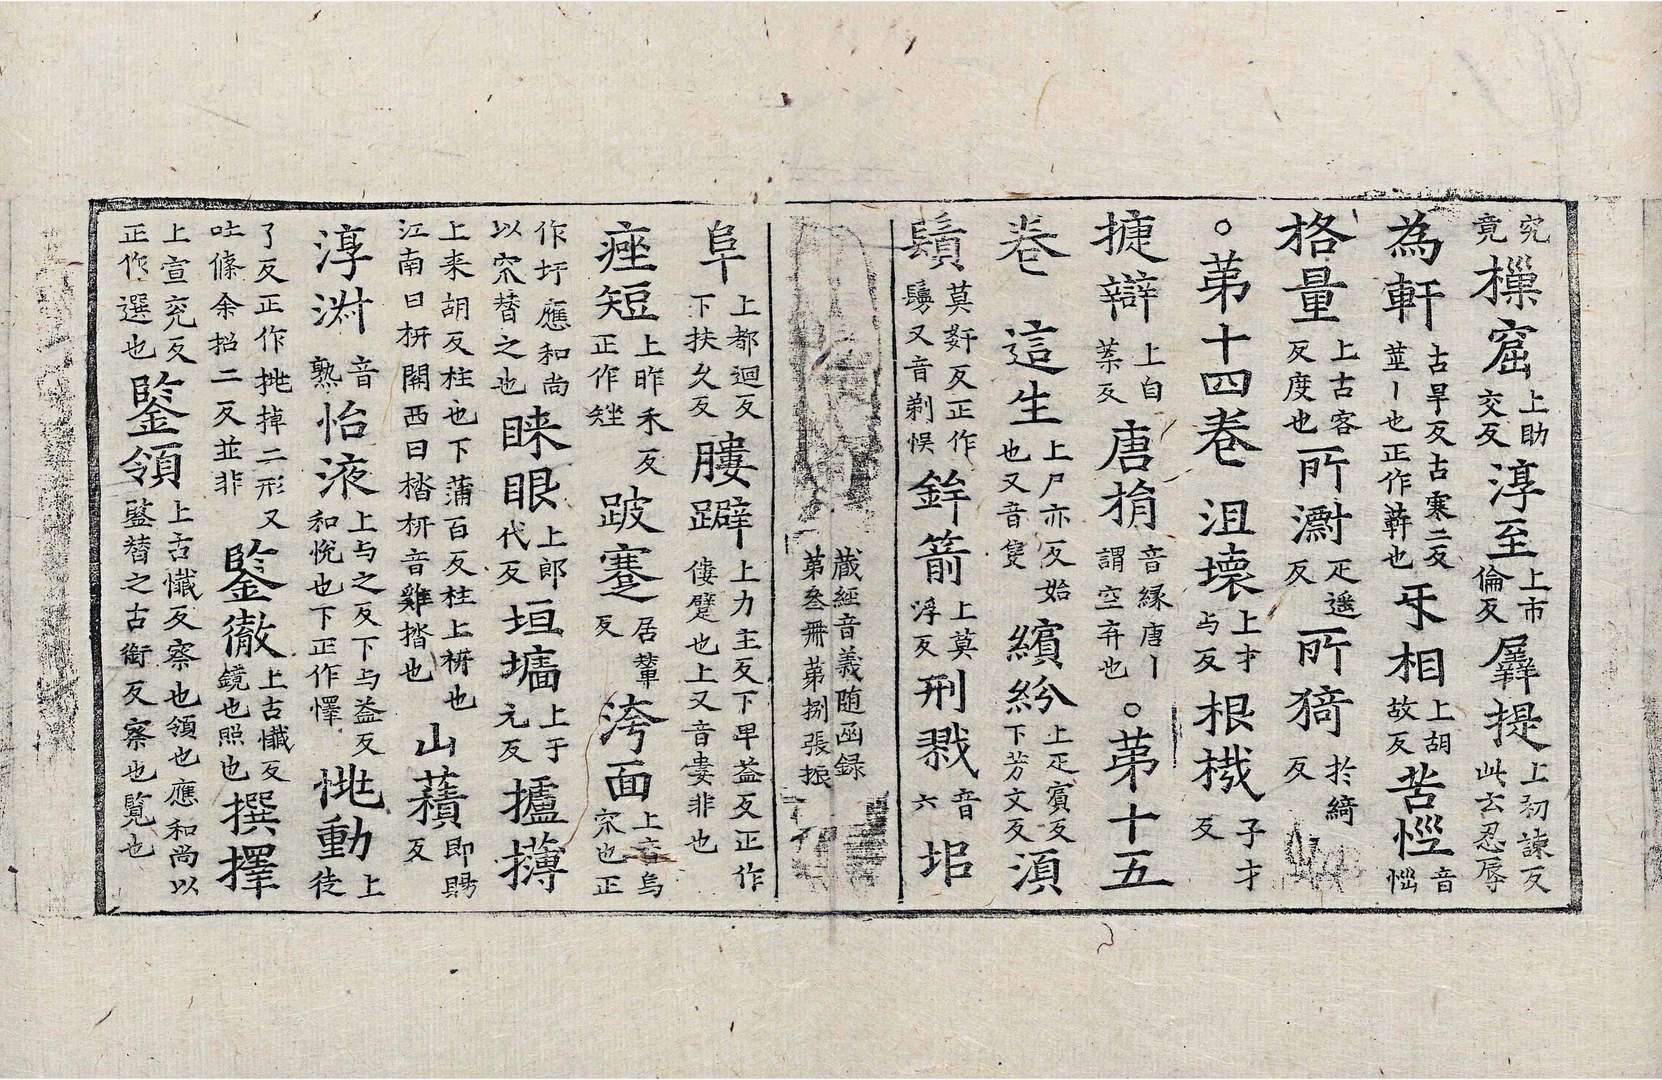 究竟樔窟上助交反淳至上市倫反羼提上初諫反此云忍辱
為軒古旱反古寒二反莖丨也正作䔇也乑相上胡故反苦惱音惱
格量上古客反度也所瀏疋遥反所猗於綺反
○第十四卷沮壞上才与反根栽子才反
㨗辯上自葉反唐捐音縁唐丨謂空弃也○第十五
卷這生上尸亦反始也又音隻繽紛上疋賓反下芳文反湏
鬚莫姧反正作鬘又音剃悮鉾箭上莫浮反刑戮音六垖
藏經音義随函録第叄冊第捌張振
阜上都迴反下扶久反膢躃上力主反下卑益反正作僂躄也上又音婁非也
痤短上昨禾反正作矬跛蹇居輦反洿面上音烏宎也正
作圬應和尚以宎替之也睞眼上郎代反垣墻上于元反攎欂
上来胡反柱也下蒲百反柱上枅也江南曰枅關西曰楷枅音雞揩也山藬即賜反
淳淑音熟怡液上与之反下与益反和恱也下正作懌恌動上徒
了反正作挑掉二形又吐條余招二反並非鋻徹上古懺反鏡也照也撰擇
上宣兖反正作選也鋻領上古懺反察也領也應和尚以監替之古銜反察也覧也